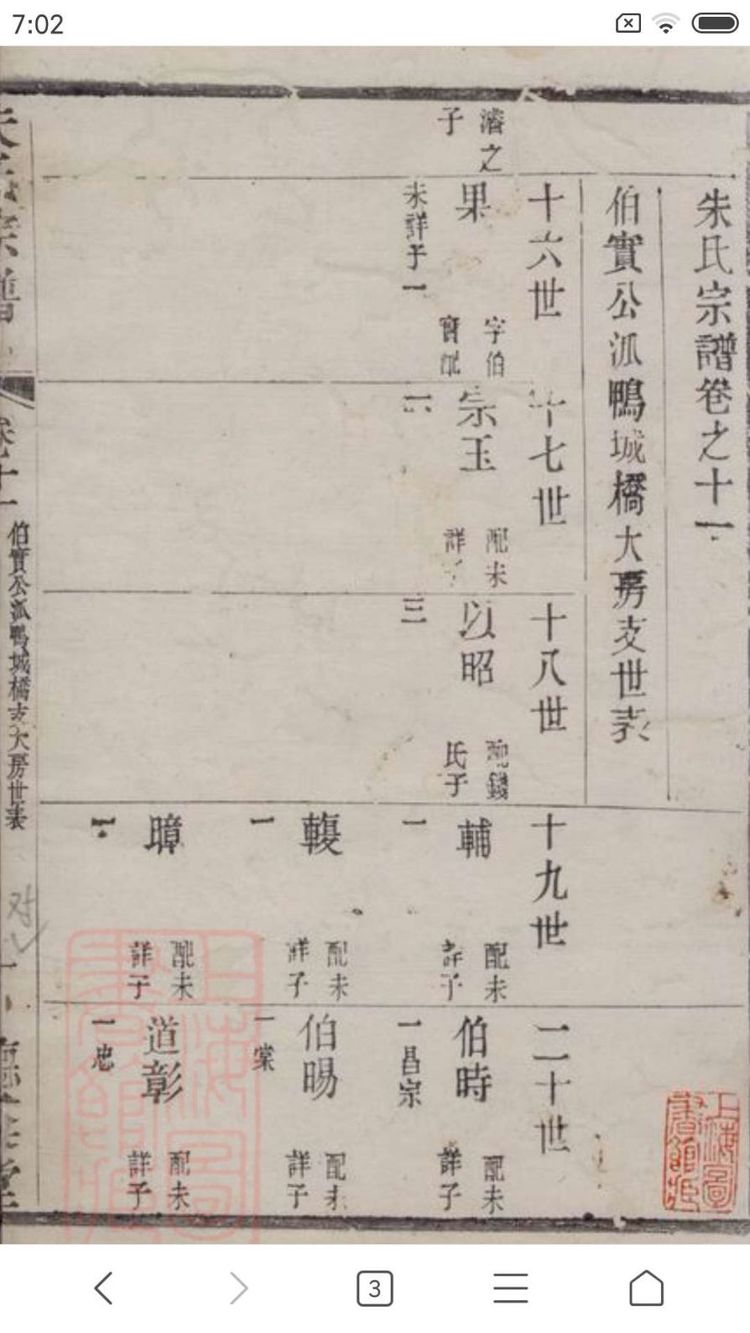 7:02
朱氏宗譜卷之十一
伯實公派鴨城橋大房支世表
十六世
濬之
子
果
字伯
實配
未詳子一
十七世
宗玉
配未
詳子
二
十八世
以昭
配錢
氏子
三
十九世
輔
配未
詳子
一
轅
配未
詳子
一
暲
配未
詳子
一
二十世
伯時
配未
詳子
一昌宗
伯暘
配未
詳子
一棠
道彰
配未
詳子
一忠
朱氏宗譜
卷十一
伯實公派鴨城橋支大房世表
对
一
上海圖
書館藏
上海圖
書館藏
3